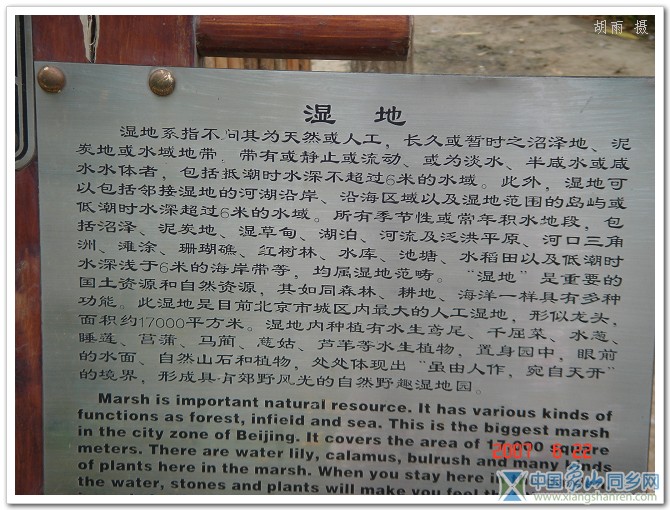 胡雨 摄
湿 地
湿地系指不问其为天然或人工，长久或暂时之沼泽地、泥
炭地或水域地带，带有或静止或流动、或为淡水、半咸水或咸
水水体者，包括抵潮时水深不超过6米的水域。此外，湿地可
以包括邻接湿地的河湖沿岸、沿海区域以及湿地范围的岛屿或
低潮时水深超过6米的水域。所有季节性或常年积水地段，包
括沼泽、泥炭地、湿草甸、湖泊、河流及泛洪平原、河口三角
洲、滩涂、珊瑚礁、红树林、水库、池塘、水稻田以及低潮时
水深浅于6米的海岸带等，均属湿地范畴。“湿地”是重要的
国土资源和自然资源，其如同森林、耕地、海洋一样具有多种
功能。此湿地是目前北京市城区内最大的人工湿地，形似龙头，
面积约17000平方米。湿地内种植有水生鸢尾、千屈菜、水葱、
睡莲、菖蒲、马蔺、慈姑、芦苇等水生植物，置身园中，眼前
的水面、自然山石和植物，处处体现出“虽由人作，宛自天开”
的境界，形成具有郊野风光的自然野趣湿地园。
Marsh is important natural resource. It has various kinds of
functions as forest, infield and sea. This is the biggest marsh
in the city zone of Beijing. It covers the area of 17,000 square
meters. There are water lily, calamus, bulrush and many kinds
of plants here in the marsh. When you stay here in
the water, stones and plants will make you feel
2007 8 22
中国象山同乡网
www.xiangshanren.com